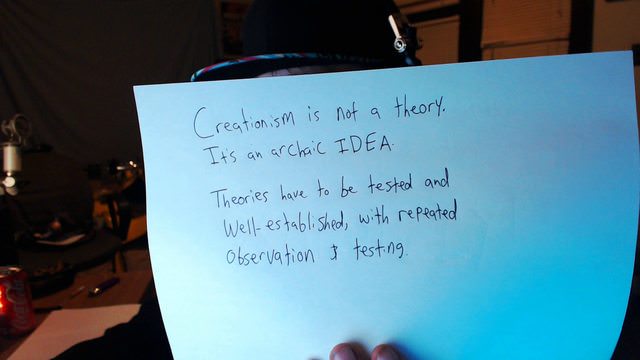 Creationism is not a theory.
It's an archaic IDEA.
Theories have to be tested and
Well-established, with repeated
observation & testing.